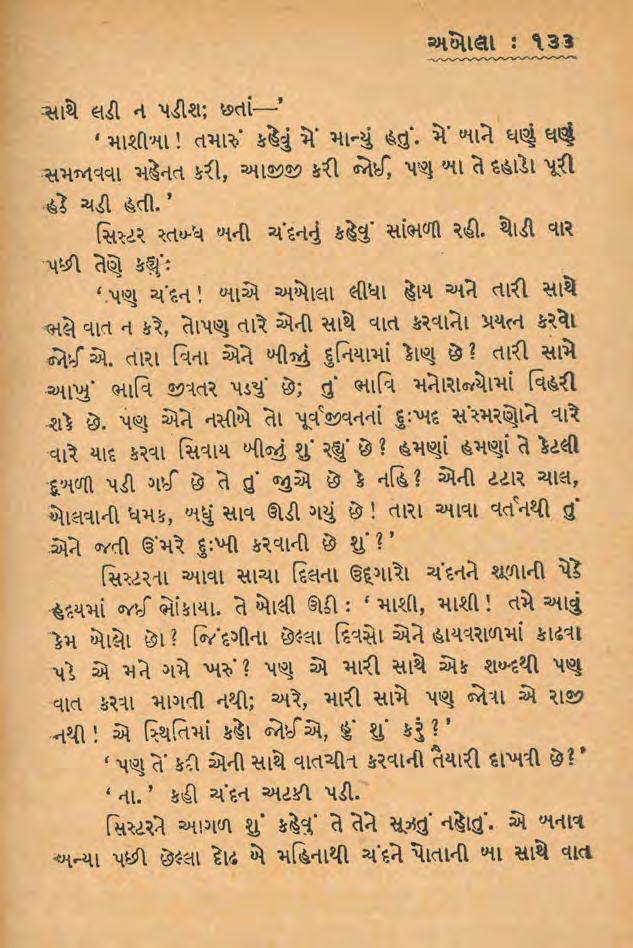 અબોલા : ૧૩૩
સાથે લડી ન પડીશ; છતાં—’
‘ માશીબા! તમારું કહેવું મેં માન્યું હતું. મેં બાને ઘણું ઘણું
સમજાવવા મહેનત કરી, આજીજી કરી જોઈ, પણ બા તે દહાડો પૂરી
હઠે ચડી હતી.’
સિસ્ટર સ્તબ્ધ બની ચંદનનું કહેવું સાંભળી રહી. થોડી વાર
પછી તેણે કહ્યું:
‘ પણ ચંદન! બાએ અબોલા લીધા હોય અને તારી સાથે
ભલે વાત ન કરે, તોપણ તારે એની સાથે વાત કરવાનો પ્રયત્ન કરવો
જોઈએ. તારા વિના એને બીજું દુનિયામાં કોણ છે? તારી સામે
આખું ભાવિ જીવતર પડયું છે; તું ભાવિ મનોરાજ્યોમાં વિહરી
શકે છે. પણ એને નસીબે તો પૂર્વજીવનનાં દુઃખદ સંસ્મરણોને વારે
વારે યાદ કરવા સિવાય બીજું શું રહ્યું છે? હમણાં હમણાં તે કેટલી
દૂબળી પડી ગઈ છે તે તું જુએ છે કે નહિ? એની ટટાર ચાલ,
બોલવાની ધમક, બધું સાવ ઊડી ગયું છે! તારા આવા વર્તનથી તું
એને જતી ઉંમરે દુઃખી કરવાની છે શું?’
સિસ્ટરના આવા સાચા દિલના ઉદ્ગારો ચંદનને શૂળાની પેઠે
હૃદયમાં જઈ ભોંકાયા. તે બોલી ઊઠી : ‘ માશી, માશી! તમે આવું
કેમ બોલો છો? જિંદગીના છેલ્લા દિવસો એને હાયવરાળમાં કાઢવા
પડે એ મને ગમે ખરું? પણ એ મારી સાથે એક શબ્દથી પણ
વાત કરવા માગતી નથી; અરે, મારી સામે પણ જોવા એ રાજી
નથી! એ સ્થિતિમાં કહો જોઈએ, હું શું કરું?’
‘ પણ તેં કદી એની સાથે વાતચીત કરવાની તૈયારી દાખવી છે?’
‘ ના.’ કહી ચંદન અટકી પડી.
સિસ્ટરને આગળ શું કહેવું તે તેને સૂઝતું નહોતું. એ બનાવ
બન્યા પછી છેલ્લા દોઢ બે મહિનાથી ચંદને પોતાની બા સાથે વાત